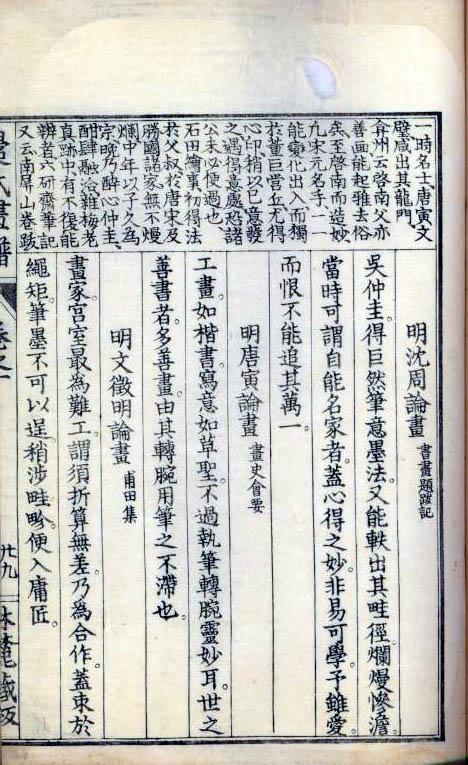 一時名士、唐寅文
璧咸出其龍門、
弇州云啓南父亦
善画能起雅去俗
矣至啓南而造妙、
九宋元名手一一
能變化出入而獨
於董巨營丘尤得
心印稍以己意發
之遇得意處恐諸
公未必便過也、
石田繪事初得法
於父叔於唐宋及
勝國諸家無不熳
爛中年以子久為
宗晩乃醉心仲圭、
酣肆融洽雖梅老
真跡中有不復能
辨者六研齋筆記
又云南屏山卷跋
明沈周論畫 書畫題跋記
吳仲圭。得巨然筆意墨法。又能軼出其畦徑。爛熳慘澹。
當時可謂自能名家者。蓋心得之妙。非易可學。予雖愛。
而恨不能追其萬一。
明唐寅論畫 畫史會要
工畫。如楷書。寫意如草聖。不過執筆轉腕靈妙耳。世之
善書者。多善畫。由其轉腕用筆之不滯也。
明文徵明論畫 甫田集
畫家宮室最為難工。謂須折算無差。乃為合作。蓋束於
繩矩。筆墨不可以逞。稍涉畦畛。便入庸匠。
廿九